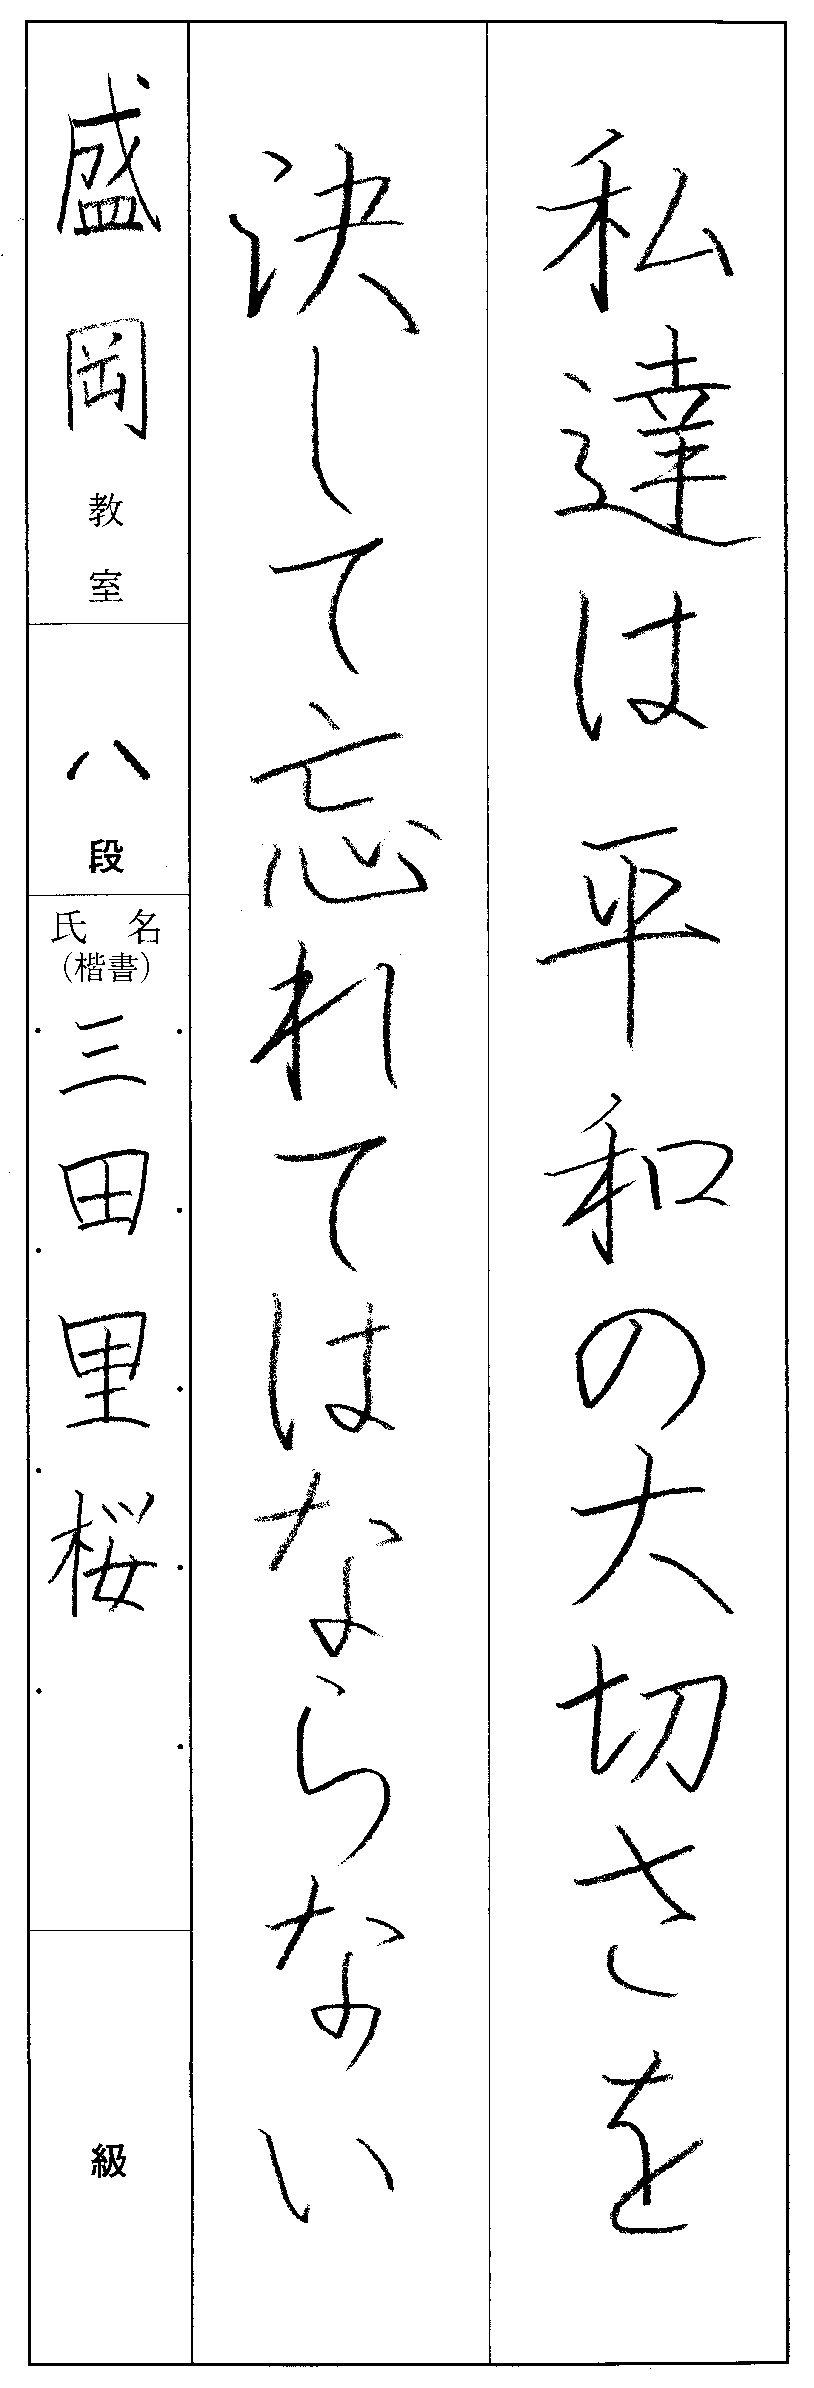 私達は平和の大切さを
決して忘れてはならない
盛岡教室
八段
氏名
（楷書）
三田里桜
級